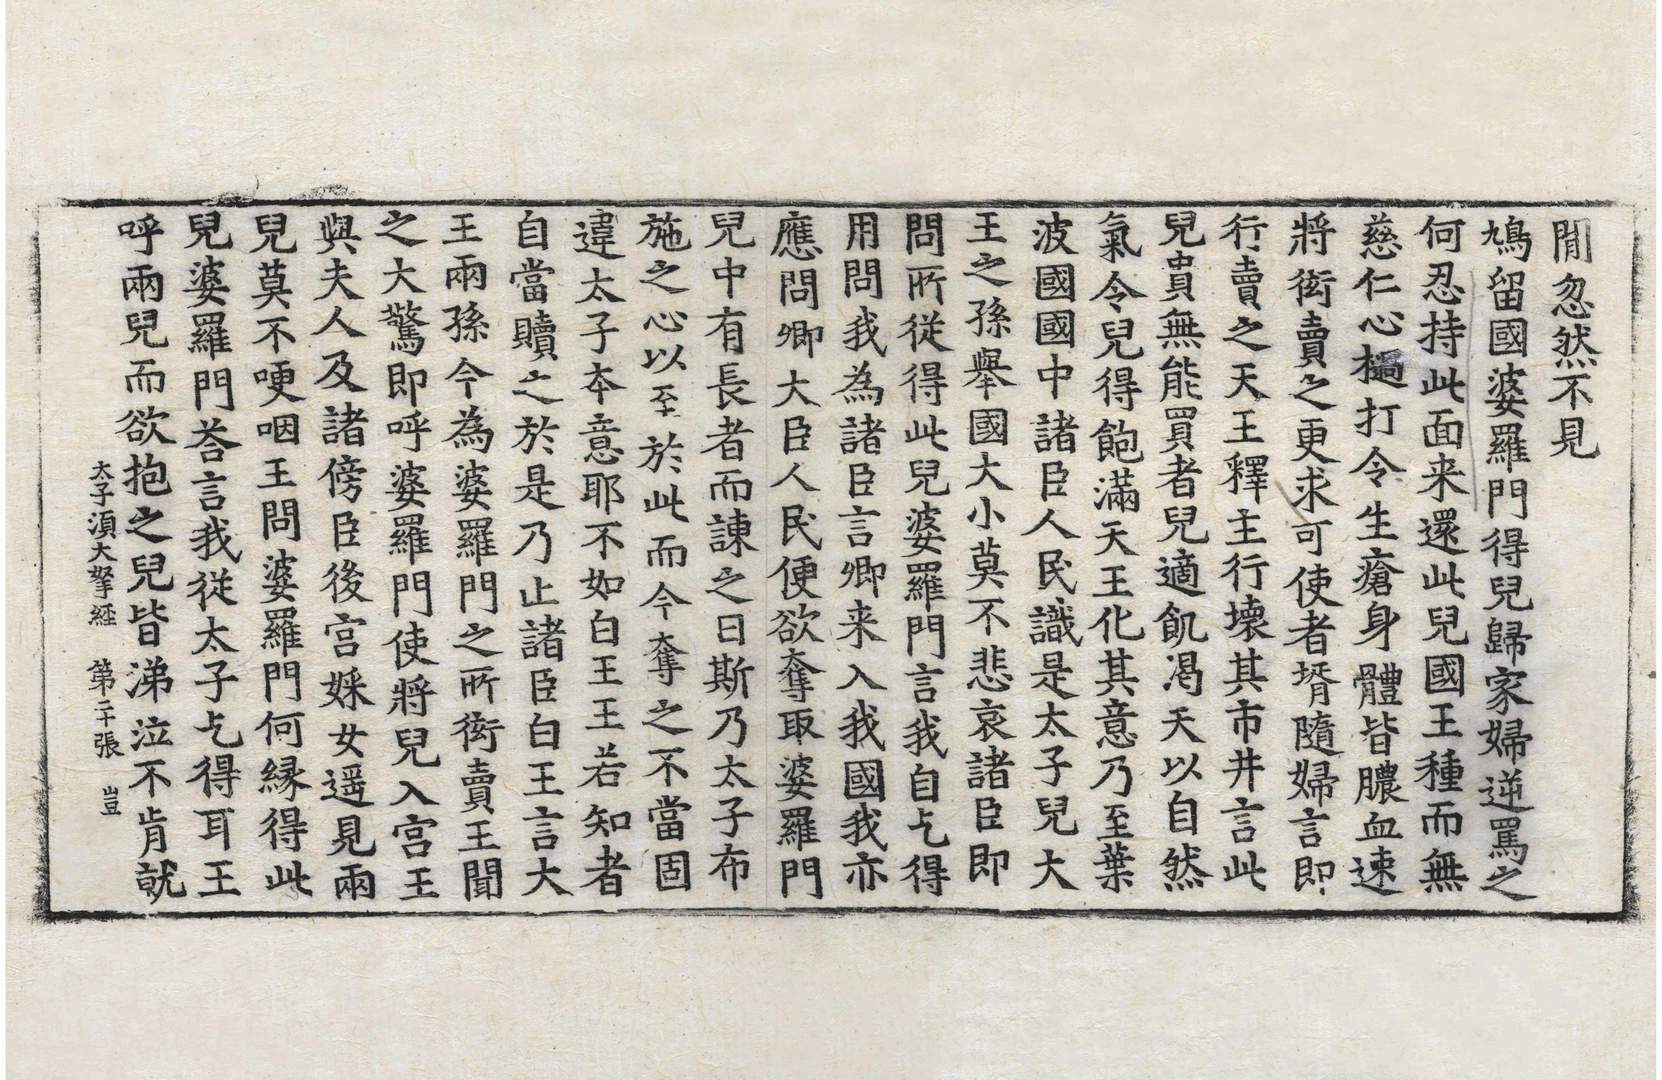 閒忽然不見
鳩留國婆羅門得兒歸家婦逆罵之
何忍持此面来還此兒國王種而無
慈仁心撾打令生瘡身體皆膿血速
將衒賣之更求可使者壻隨婦言即
行賣之天王釋主行壞其市井言此
兒貴無能買者兒適飢渴天以自然
氣令兒得飽滿天王化其意乃至葉
波國國中諸臣人民識是太子兒大
王之孫舉國大小莫不悲哀諸臣即
問所從得此兒婆羅門言我自乞得
用問我為諸臣言卿来入我國我亦
應問卿大臣人民便欲奪取婆羅門
兒中有長者而諫之曰斯乃太子布
施之心以至於此而今奪之不當固
違太子本意耶不如白王王若知者
自當贖之於是乃止諸臣白王言大
王兩孫今為婆羅門之所衒賣王聞
之大驚即呼婆羅門使將兒入宮王
與夫人及諸傍臣後宮婇女遥見兩
兒莫不哽咽王問婆羅門何緣得此
兒婆羅門荅言我從太子乞得耳王
呼兩兒而欲抱之兒皆涕泣不肯就
太子湏大拏經 第二十張 豈